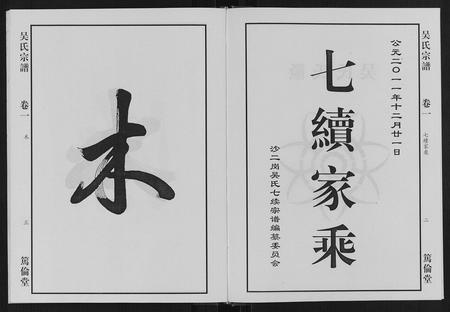 吴氏宗譜
卷一
七續家乘
二
篤倫堂
公元二０一一年十二月廿一日
七續家乘
沙二岗吴氏七续宗谱编纂委员会
木
吴氏宗譜
卷一
木
三
篤倫堂